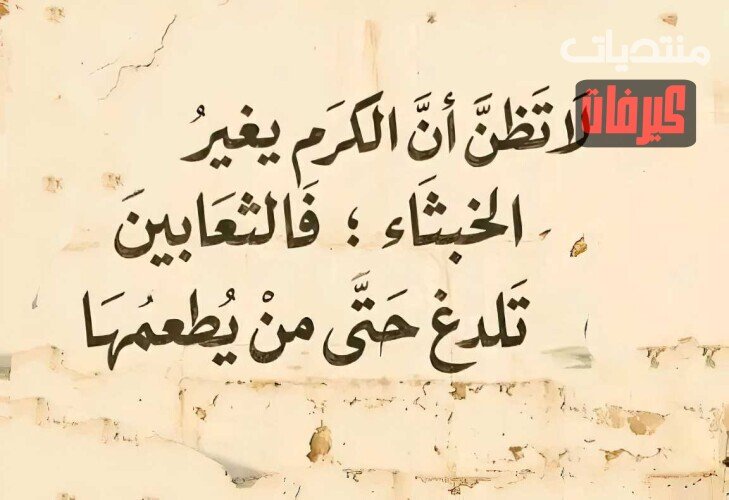 منتديات
كيرفان
لَا تَظنَّ أنَّ الكرَم يغيرُ
الخبثَاء ؛ فَالثعَابينَ
تَلدغ حَتَّى منْ يُطعمُهَا